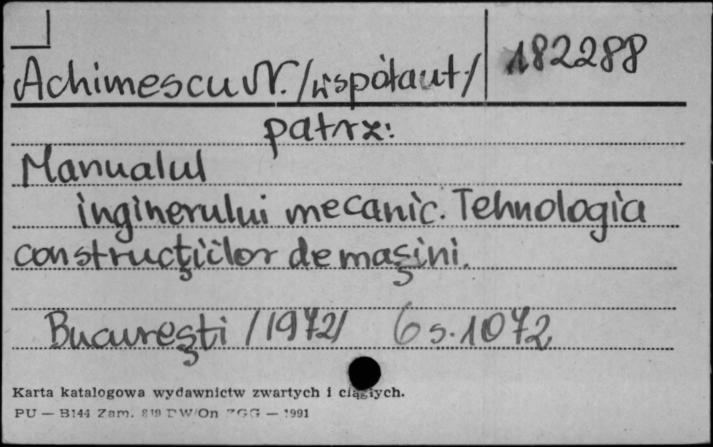 Achimescu N. /współaut/ 182288
patrz:
Manualul
inginerului mecanic. Tehnologia
construcţiilor de maşini.
Bucureşti /1972/ 6 s. 1072
Karta katalogowa wydawnictw zwartych i ciągłych.
PU — B144 Zam. PW/On ZGG — 1991